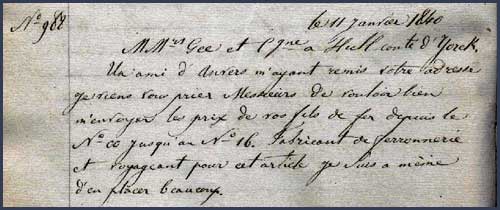 N° 988
le 11 Janvier 1840
M Mrs Gee et Cgne a Hull comté d'Yorck.
Un ami d'Anvers m'ayant remis votre adresse
je viens vous prier Messieurs de vouloir bien
m'envoyer les prix de vos fils de fer depuis le
N° 00 jusqu'au N° 16. Fabricant de ferronnerie
et voyageant pour cet article je suis a même
d'en placer beaucoup.